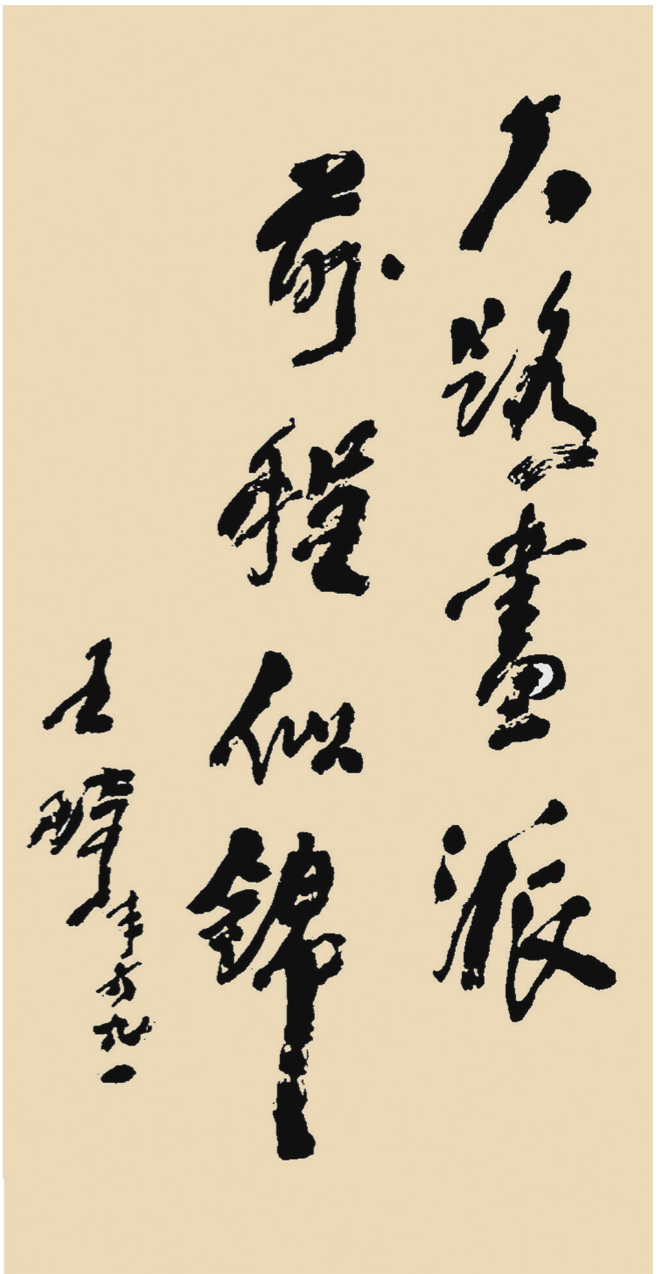 大路畫派
前程似錦
王年方九一